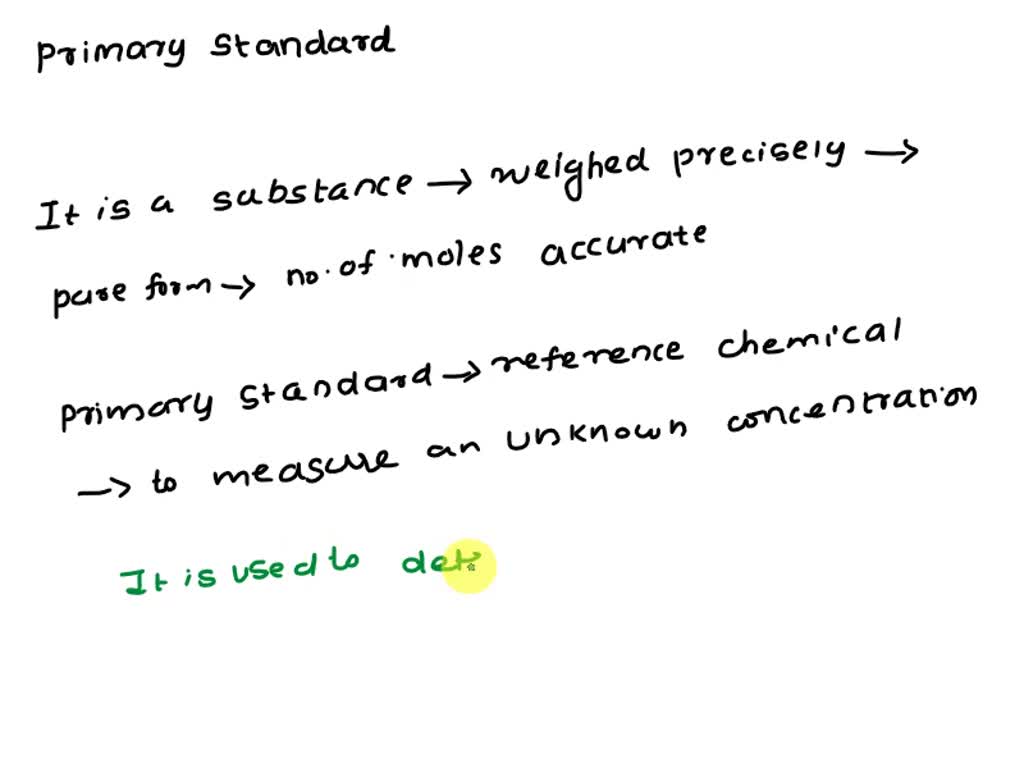 Primary Standard
It is a substance → weighed precisely →
pure form → no. of moles accurate
Primary Standard → reference chemical
→ to measure an unknown concentration
It is used to det